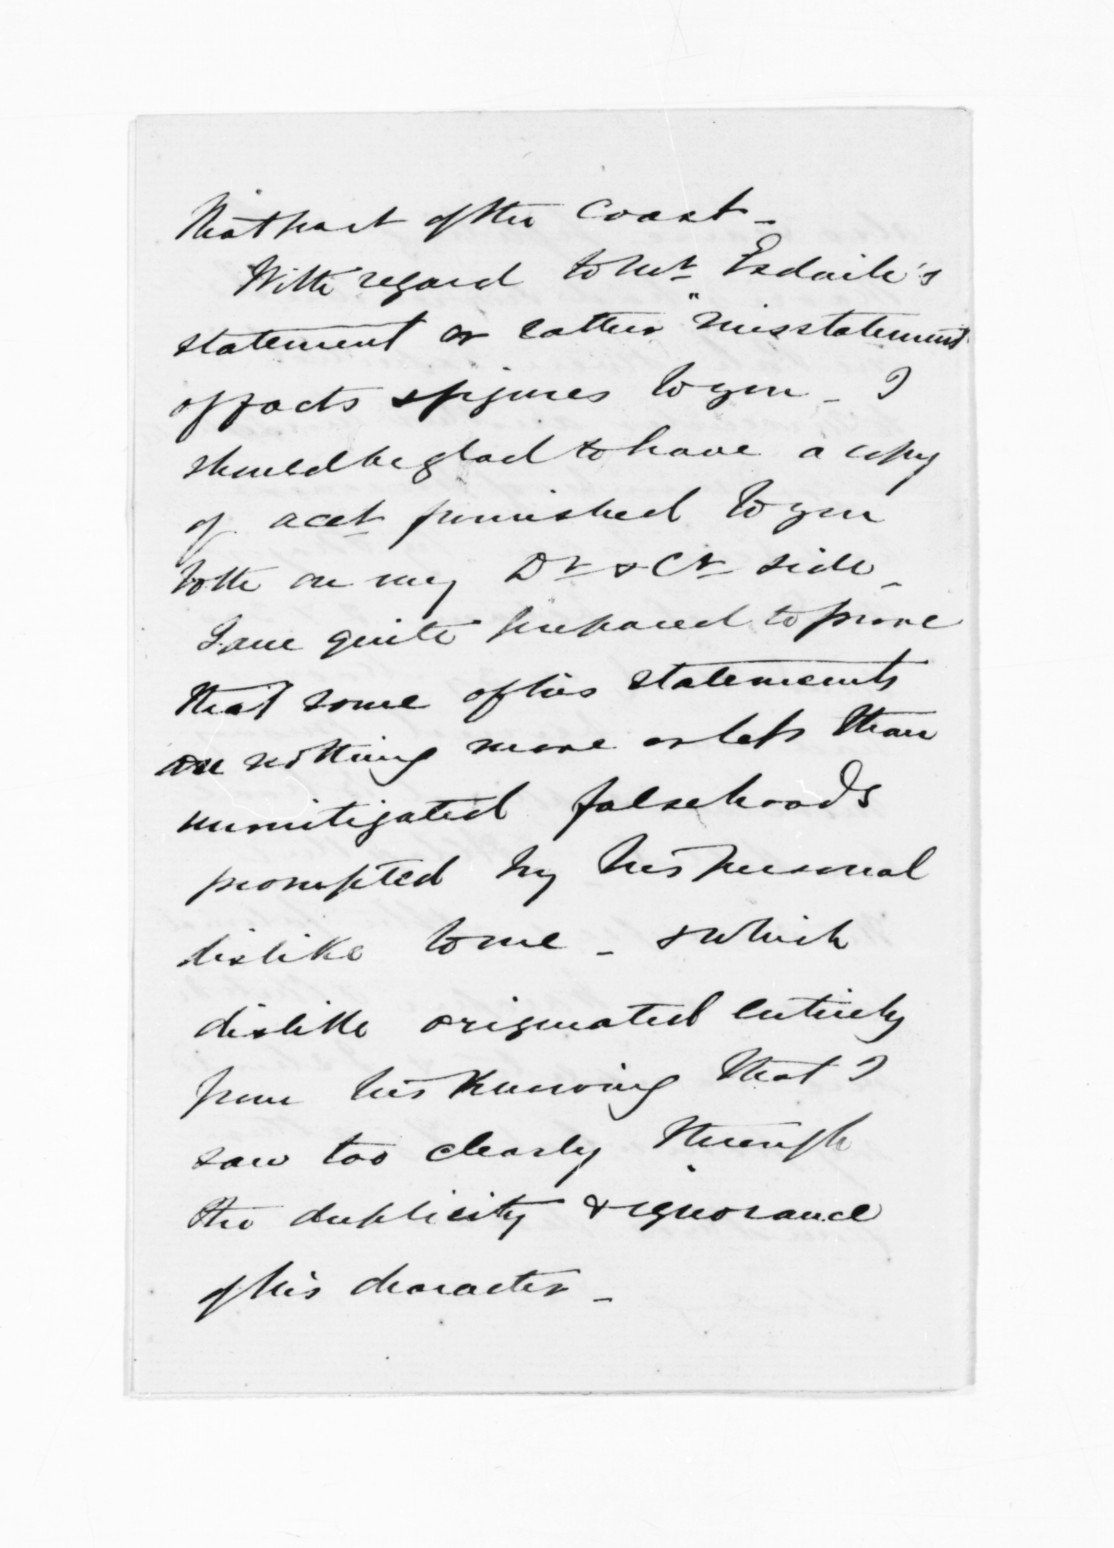 that part of the coast -
With regard to Mr Esdaile's
statement or rather "misstatement
of facts & figures to you - I
should be glad to have a copy
of acct furnished to you
both on my Dr & Cr side -
I am quite prepared, to prove
that some of his statements
are nothing more or less than
unmitigated falsehoods
prompted by his personal
dislike to me - & which
dislike originated entirely
from his knowing that I
saw too clearly through
the duplicity & ignorance
of his character -